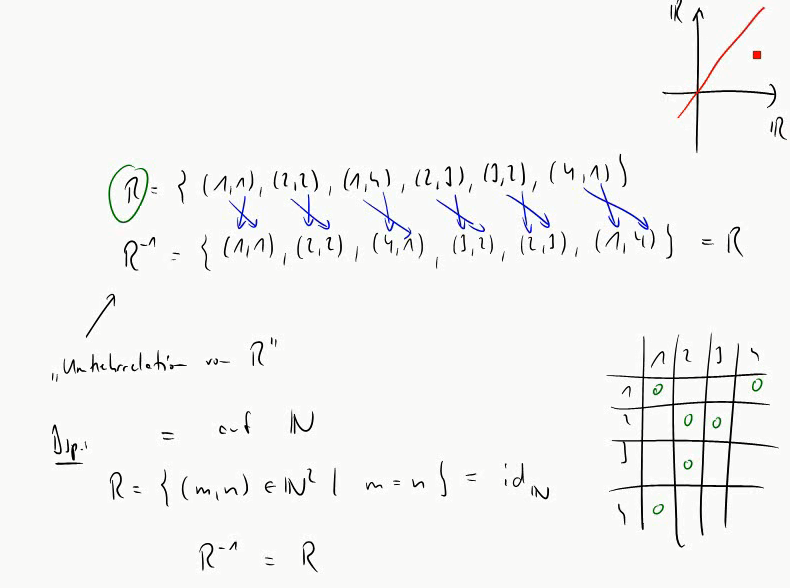 ℝ
ℝ
R = { (1,1), (2,2), (1,4), (2,3), (3,2), (4,1) }
R⁻¹ = { (1,1), (2,2), (4,1), (3,2), (2,3), (1,4) } = R
„Umkehrrelation von R"
1 2 3 4
1 0 0
2 0 0
3 0
4 0
Bsp.: = auf ℕ
R = { (m,n) ∈ ℕ² | m = n } = id_ℕ
R⁻¹ = R